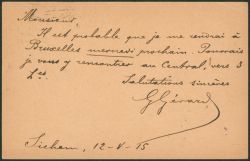 Monsieur.
Il est probable que je me rendrai à
Bruxelles mercredi prochain. Pourrais
je vous y rencontrer au Central, vers 3
hes
Salutations sincères
GGérard
Sichem, 12-V-15